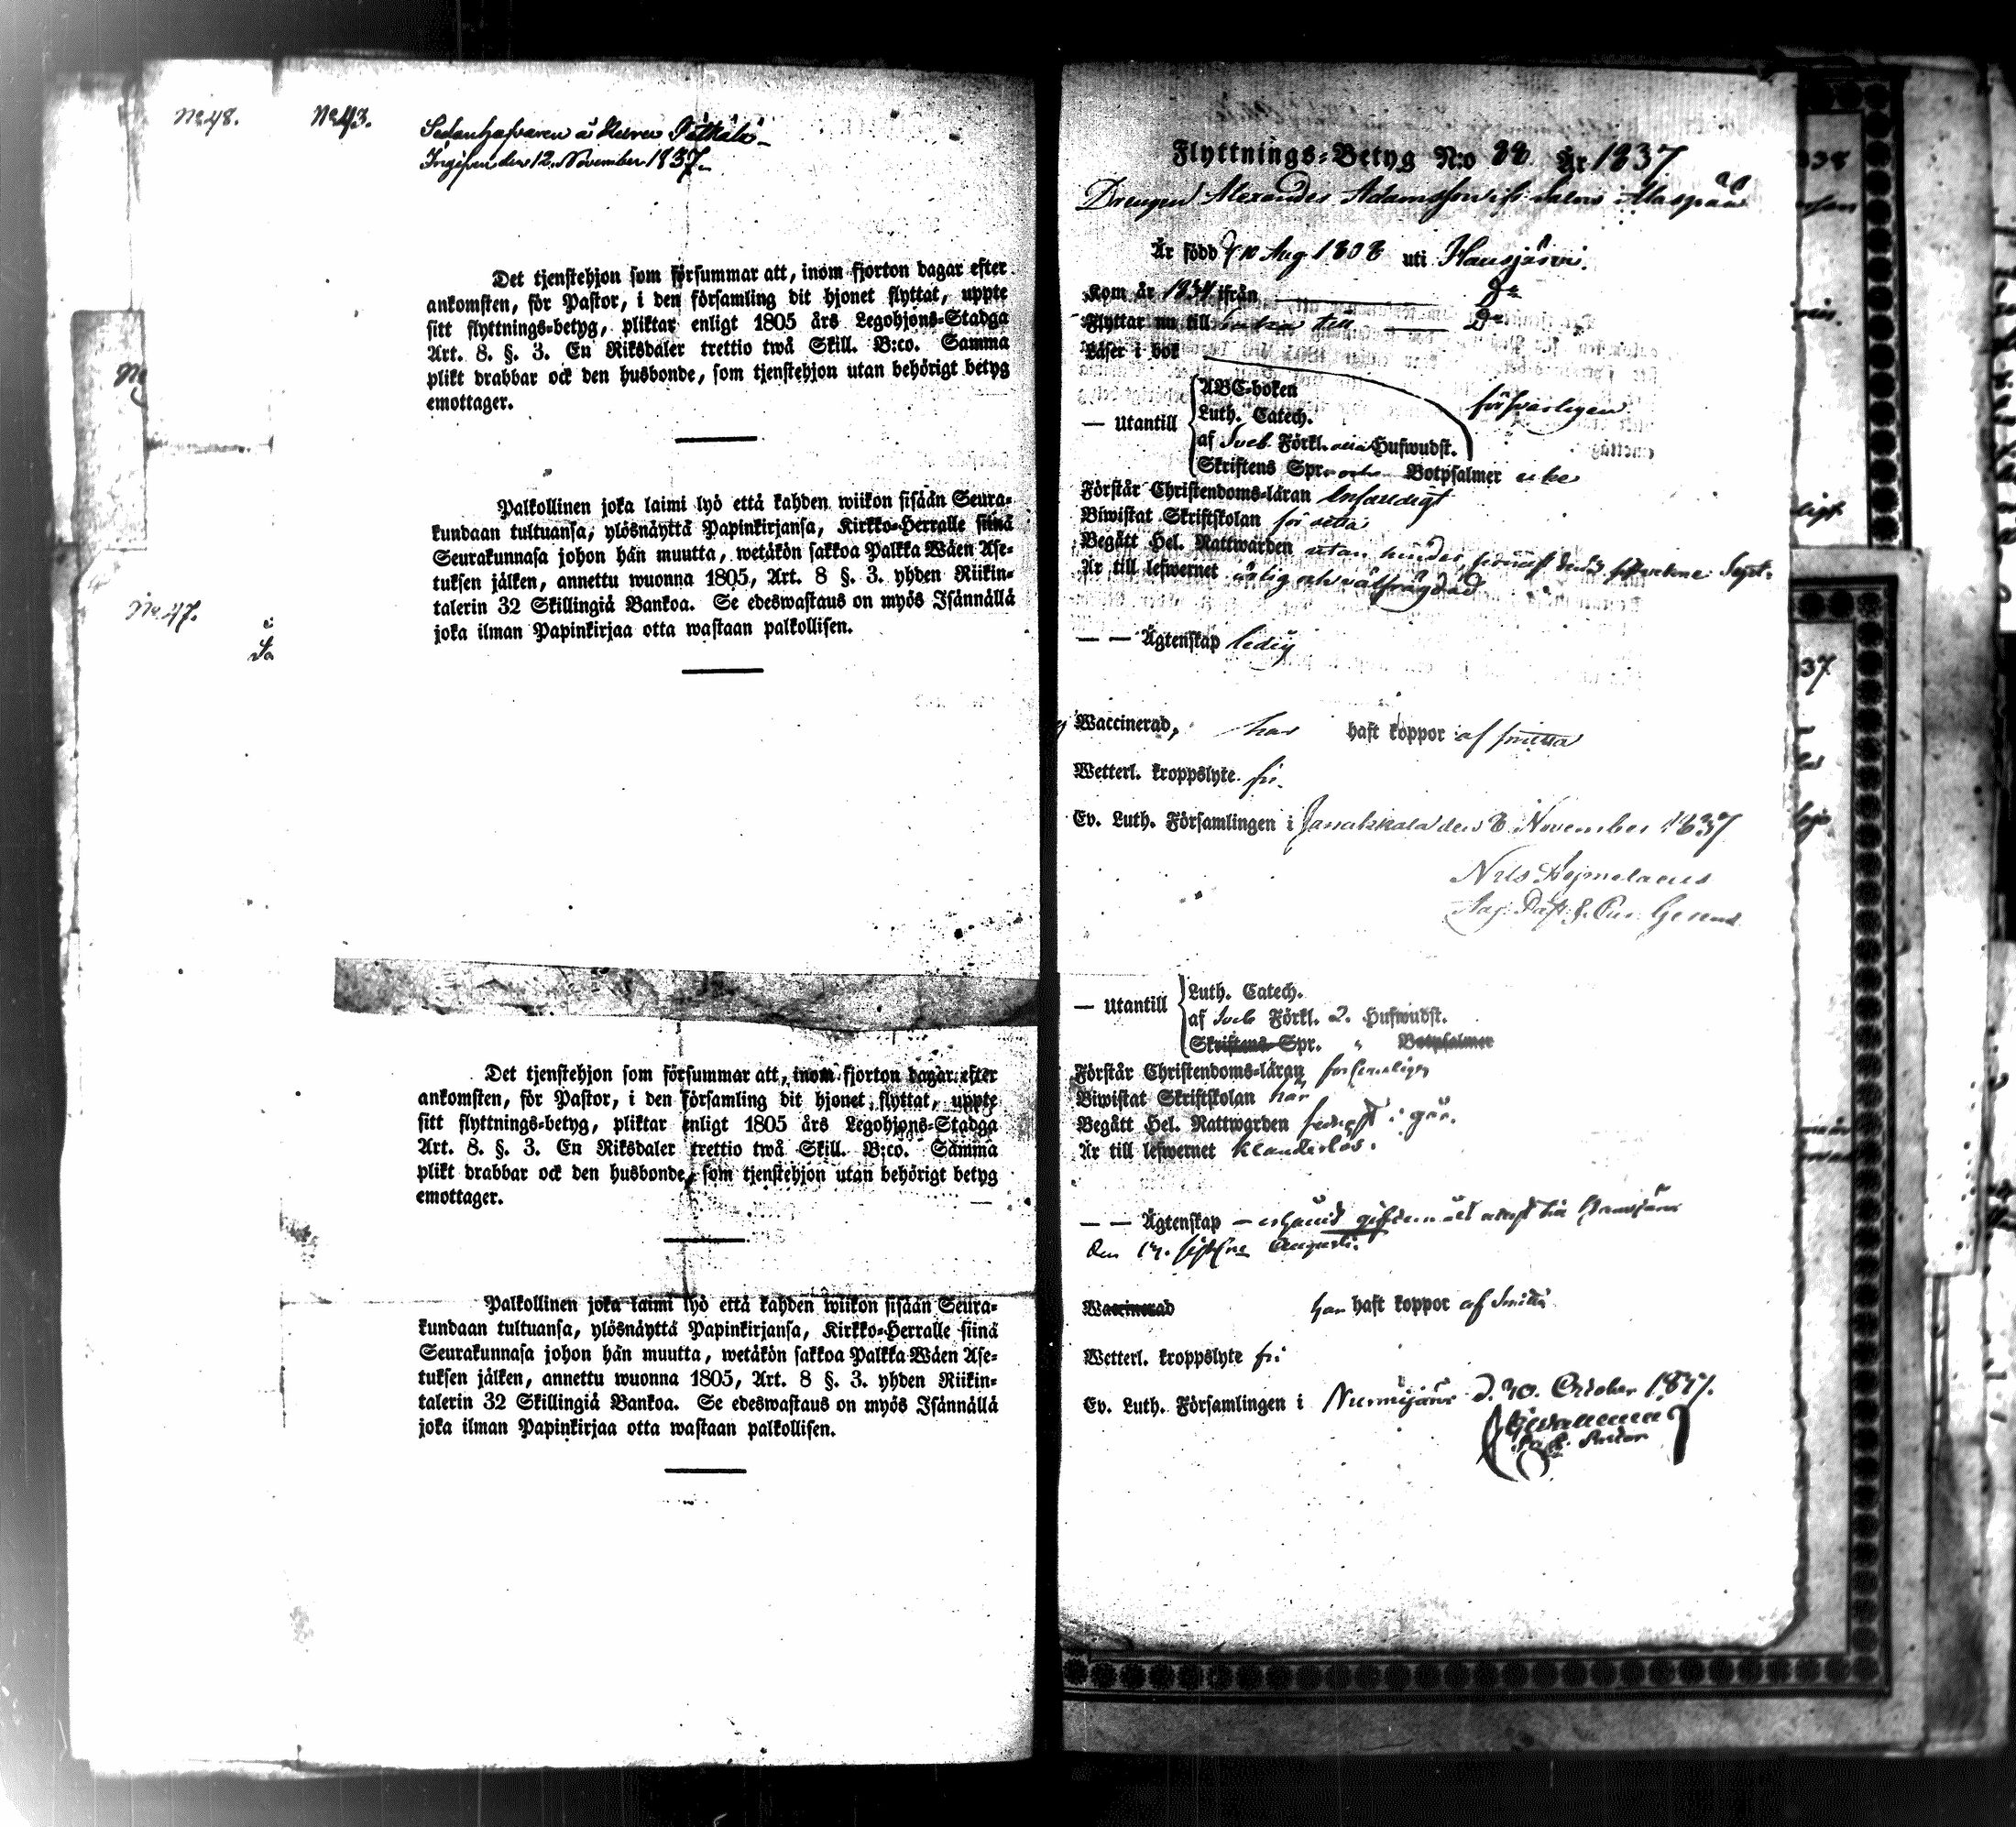 No 48.
No 43.
Ingifven den 12. November 1837.
Det tjenstehjon som försummar att, inom fjorton dagar efter
ankomsten, för Pastor, i den församling dit hjonet flyttat, uppte
sitt flyttnings-betyg, pliktar enligt 1805 års Legohjons-Stadga
Art. 8. §. 3. En Riksdaler trettio twå Skill. B:co. Samma
plikt drabbar ock den husbonde, som tjenstehjon utan behörigt betyg
emottager.
Palkollinen joka laimi lyö että kahden wiikon sisään Seura-
kundaan tultuansa, ylösnäyttä Papinkirjansa, Kirkko-Herralle siinä
Seurakunnasa johon hän muutta, wetäkön sakkoa Palkka Wäen Ase-
tuksen jälken, annettu wuonna 1805, Art. 8 §. 3. yhden Riikin-
talerin 32 Skillingiä Bankoa. Se edeswastaus on myös Isännällä
joka ilman Papinkirjaa otta wastaan palkollisen.
No 47.
Det tjenstehjon som försummar att, inom fjorton dagar efter
ankomsten, för Pastor, i den församling dit hjonet flyttat, uppte
sitt flyttnings-betyg, pliktar enligt 1805 års Legohjons-Stadga
Art. 8. §. 3. En Riksdaler trettio twå Skill. B:co. Samma
plikt drabbar ock den husbonde, som tjenstehjon utan behörigt betyg
emottager.
Palkollinen joka laimi lyö että kahden wiikon sisään Seura-
kundaan tultuansa, ylösnäyttä Papinkirjansa, Kirkko-Herralle siinä
Seurakunnasa johon hän muutta, wetäkön sakkoa Palkka Wäen Ase-
tuksen jälken, annettu wuonna 1805, Art. 8 §. 3. yhden Riikin-
talerin 32 Skillingiä Bankoa. Se edeswastaus on myös Isännällä
joka ilman Papinkirjaa otta wastaan palkollisen.
Flyttnings-Betyg N:o 88 År 1837
Drengen Alexander Adamsson
Är född d 10 Aug 1808 uti Hausjärvi.
Kom år 1834 ifrån do
Flyttar nu till baka till do
Läser i bok
— Utantill
ABC-boken
Luth. Catech. försvarligen
af Sveb. Förkl. alla Hufwudst.
Skriftens Spr. och Botpsalmer icke
Förstår Christendoms-läran
Biwistat Skriftskolan för detta
Begått Hel. Nattwarden utan hinder, senast sistledne Sept.
Är till lefwernet ärlig och välfrägdad
— — Ägtenskap ledig
Waccinerad, har haft koppor af smitta
Wetterl. kroppslyte fri.
Ev. Luth. Församlingen i Janakkala den 8 November 1837
Nils Hejmelaeus
— Utantill
Luth. Catech.
af Sveb Förkl. 2. Hufwudst.
Skriftens Spr. " Botpsalmer
Förstår Christendoms-läran försvarligen
Biwistat Skriftskolan har
Begått Hel. Nattwarden senast i går.
Är till lefwernet klanderlös.
— — Ägtenskap
den 17. sistl.ne Augusti.
Waccinerad har haft koppor af Smitta
Wetterl. kroppslyte fri
Ev. Luth. Församlingen i Nurmijärvi d. 30. October 1837.